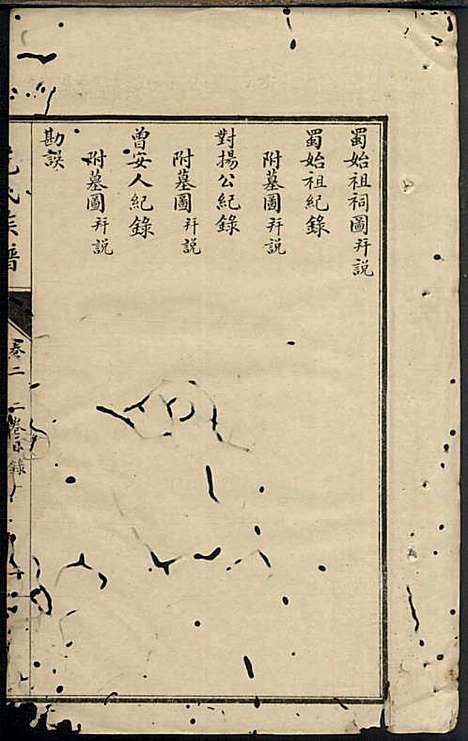 蜀始祖祠圖并説
蜀始祖紀錄
附墓圖并説
對揚公紀錄
附墓圖并説
曾安人紀錄
附墓圖并説
勘誤
氏族譜
卷二 二卷目錄